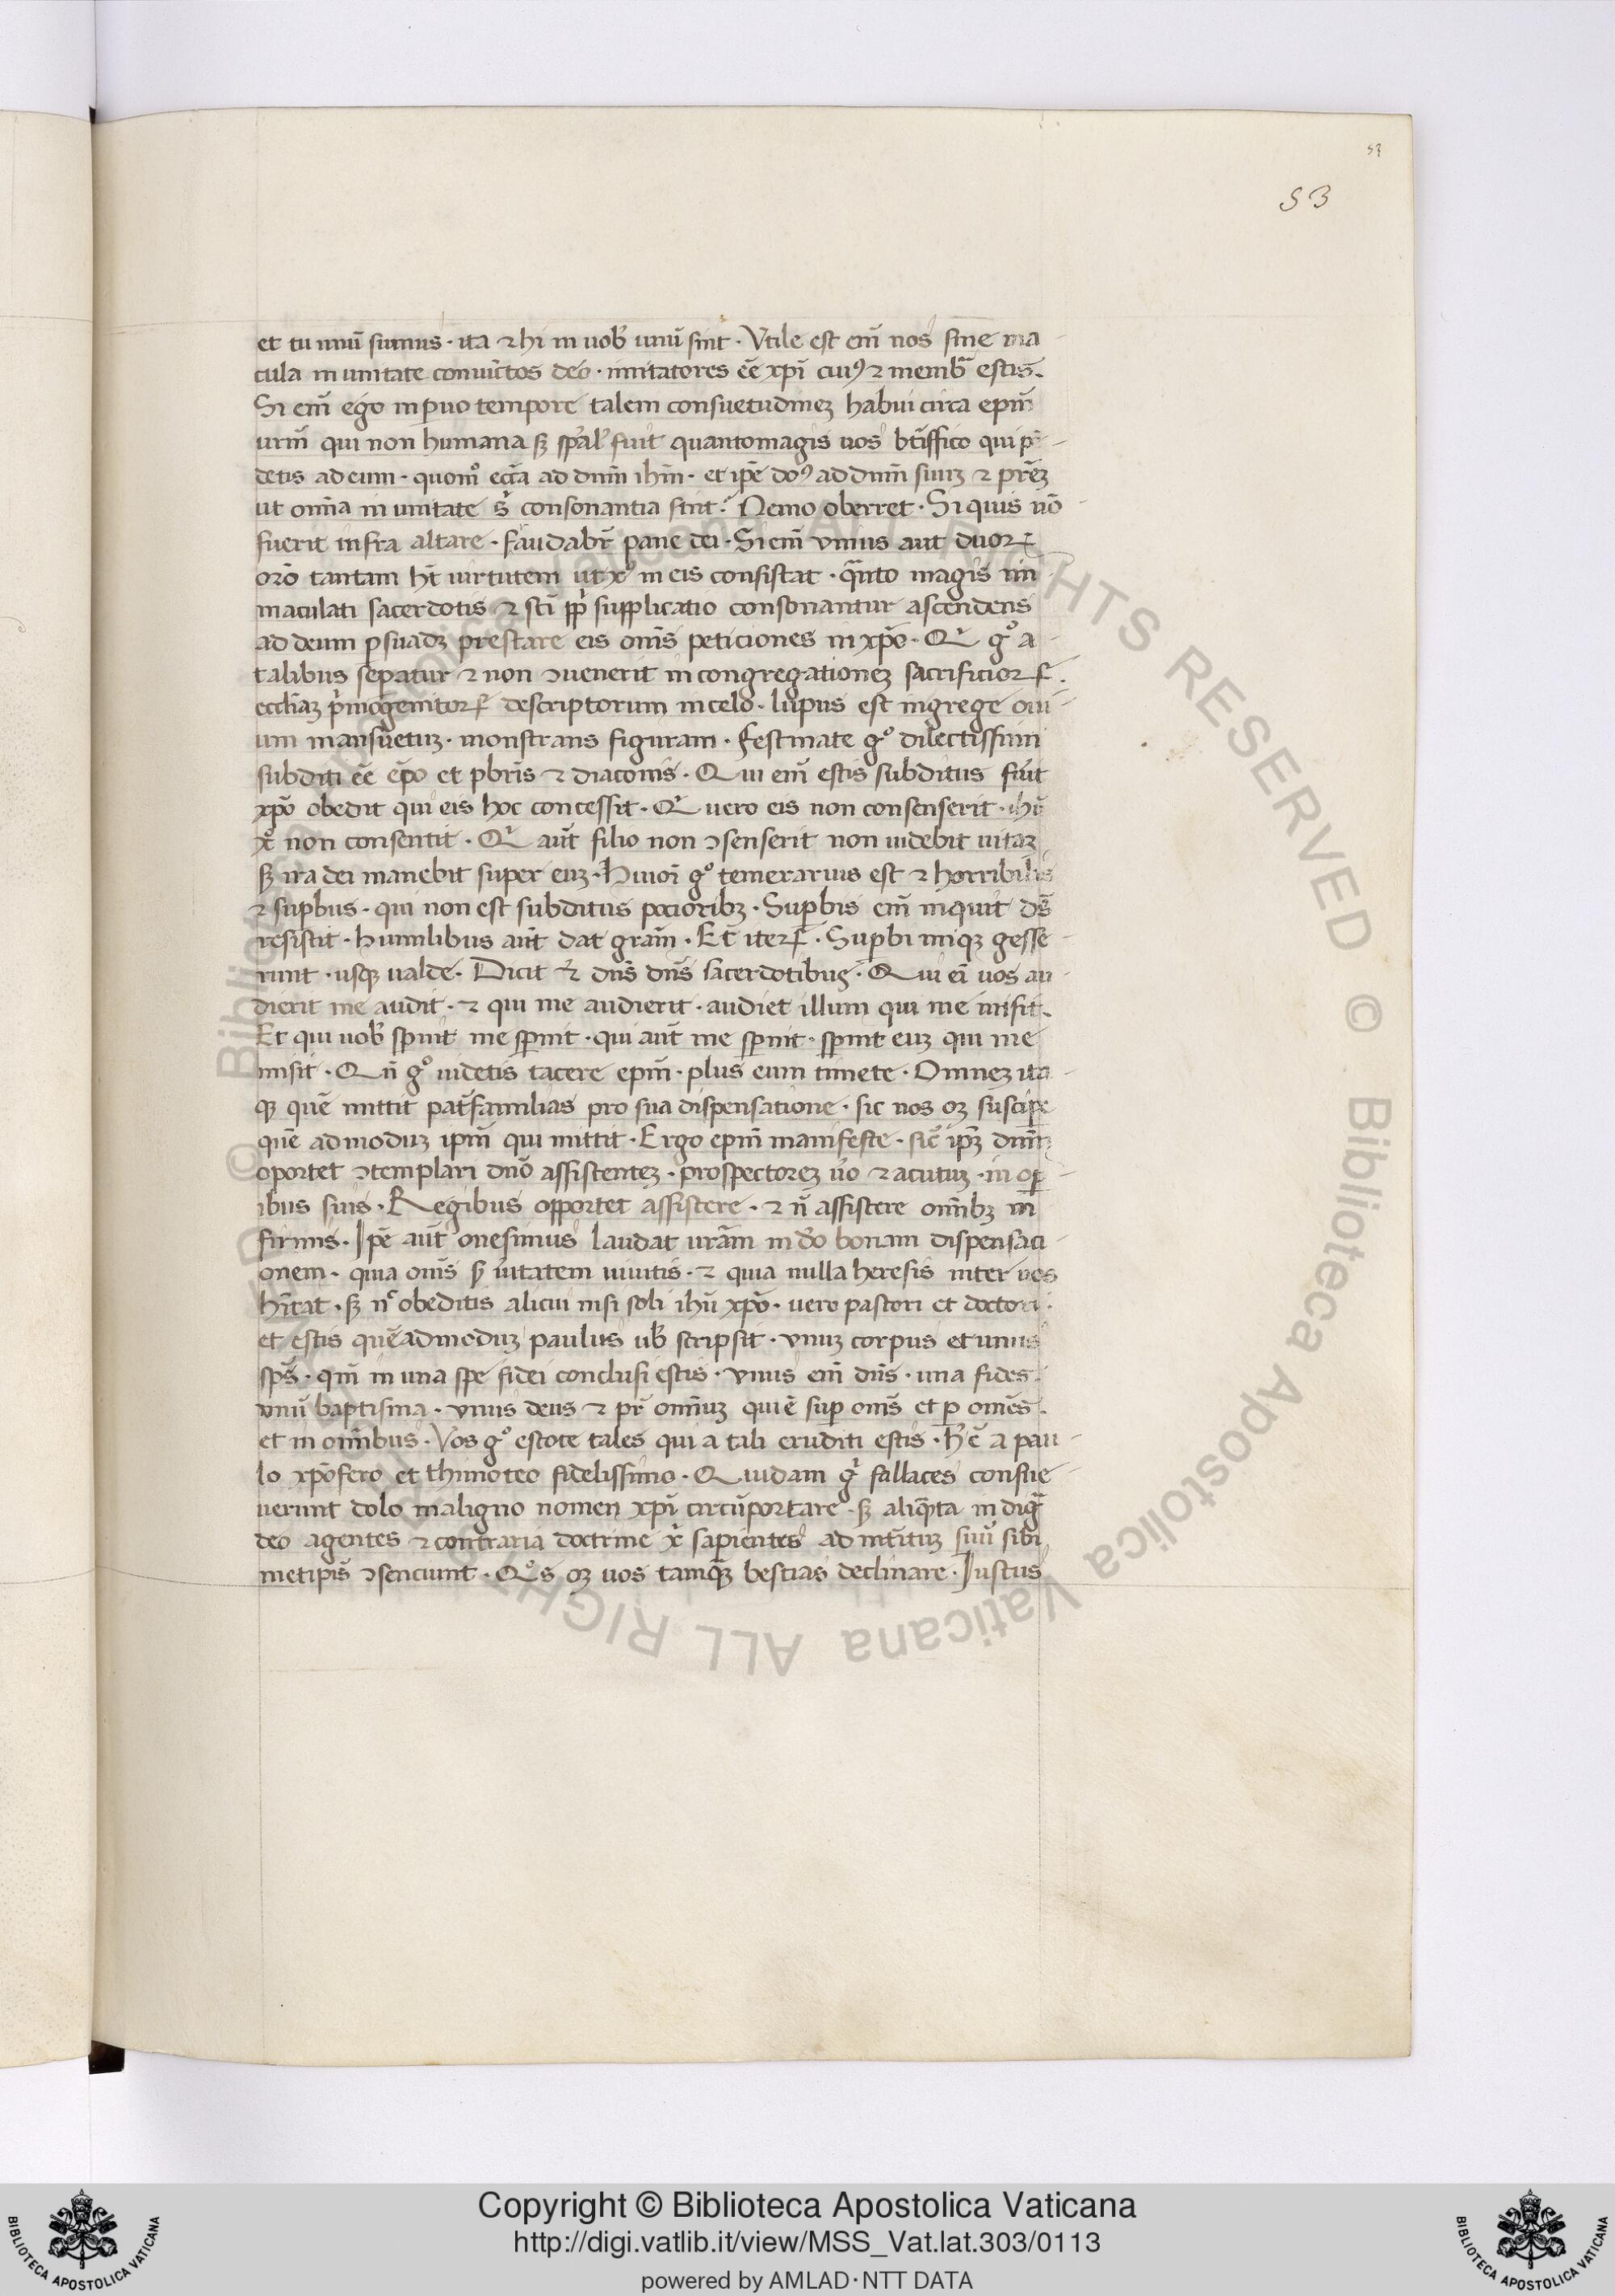 53
53
et tu unū sumus · ita ⁊ hi in uob᷒ unū sint · Vtile est em̄ nos sine ma
cula in unitate conuictos deo · imitatores eē xp̄i cuiꝰ ⁊ membᷓ estis.
Si em̄ ego in ꝑuo tempore talem consuetudineꝫ habui circa ep̄m
ur̄m qui non humana sꝫ sp̄al᷒ fuit quantomagis uos bt̄iffico qui
detis ad eum · quomº eccᷓa ad dn̄m ihm̄ · et ip̄e doꝰ ad dn̄m suuꝫ ⁊ pr̄eꝫ
ut om̄ia in unitate consonantia sint. Nemo oberret · Si quis nō
fuerit infra altare · fraudabr̄ pane dei · Si em̄ vnius aut duoꝝ
orō tantam hꝫ uirtutem ut xp̄s in eis consistat · qᷓnto magis im
maculati sacerdotis ⁊ sc̄i supplicatio consonantur ascendens
ad deum ꝑsuadꝫ prestare eis om̄s peticiones in xp̄o · Qⁱ gº a
talibus sepatur ⁊ non ꝯuenerit in congregationeꝫ sacrificioꝝ.
eccliaꝫ pⁱmogenitoꝝ descriptorum in celo · lupus est in grege oui
um mansuetuꝫ · monstrans figuram · Festinate gº dilectissimi
subditi eē ep̄o et pb̄ris ⁊ diaconis · Qui em̄ estis subditus fuit
xp̄o obedit qui eis hoc concessit · Qⁱ vero eis non consenserit · ihū
xº non consentit · Qⁱ aūt filio non ꝯsenserit non uidebit uitaꝫ
sꝫ ira dei manebit super euꝫ · Huior̄ gº temerarius est ⁊ horribilis
⁊ supbus · qui non est subditus pocioribꝫ · Supbis em̄ inquit ds̄
resistit · humilibus aūt dat grām · Et iteꝝ · Supbi iniqꝫ gesse
runt · usqꝫ ualde · Dicit dn̄s sacerdotibus · Qui ei uos au
dierit me audit · ⁊ qui me audierit · audiet illum qui me misit.
Et qui uob᷒ sp̄nit me sp̄nit · qui aūt me sp̄nit · sp̄nit euꝫ qui me
misit · Qn̄ gº uidetis tacere ep̄m · plus eum timete · Omneꝫ ita
qꝫ quē mittit pat̄familias pro sua dispensatione · sic nos oꝫ suscipe
quē admoduꝫ ip̄m qui mittit · Ergo ep̄m manifeste · sic̄ ip̄ꝫ dn̄m
oportet ꝯtemplari dn̄o assistenteꝫ · prospectoreꝫ ūo ⁊ acutuꝫ · in oꝑ
ibus suis · Regibus opportet assistere · ⁊ n̄ assistere om̄ibꝫ in
firmis · Ip̄e aūt onesimus laudat urām in dº bonam dispensaci
onem · quia om̄s uitatem uiuitis · ⁊ quia nulla heresis inter uos
hīt̄at · sꝫ nᶜ obeditis alicui nisi soli ihū xp̄o · uero pastori et doctori ·
et estis quēadmoduꝫ paulus ub᷒ scripsit · vnuꝫ corpus et unus
sp̄s · qm̄ in una spe fidei conclusi estis · vnus em̄ dn̄s · una fides ·
vnū baptisma · vnus deus ⁊ pr̄ om̄iuꝫ qui ē sup om̄s et ꝑ om̄es.
et in om̄ibus · Vos gº estote tales qui a tali eruditi estis · h᷒ē a pau
lo xp̄ofero et thimoteo fidelissimo · Quidam gⁱ fallaces consue
uerunt dolo maligno nomen xp̄i circūportare · sꝫ aliqᷓta in digᷓ
deo agentes ⁊ contraria doctrine xⁱ sapientes ad int̄ituꝫ suū sibi
metip̄s ꝯsenciunt · Qºs oꝫ uos tamqᷓꝫ bestias declinare · Iustus
Copyright © Biblioteca Apostolica Vaticana
http://digi.vatlib.it/view/MSS_Vat.lat.303/0113
powered by AMLAD·NTT DATA
BIBLIOTECA APOSTOLICA VATICANA
BIBLIOTECA APOSTOLICA VATICANA